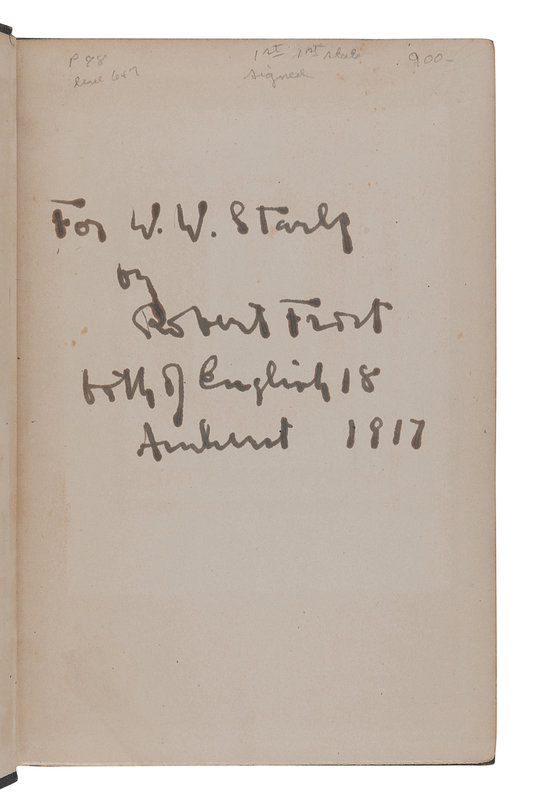 P 88 1st 1st state 900-
line 6+7 signed
For W. W. Stark
by
Robert Frost
both of English 18
Amherst 1917